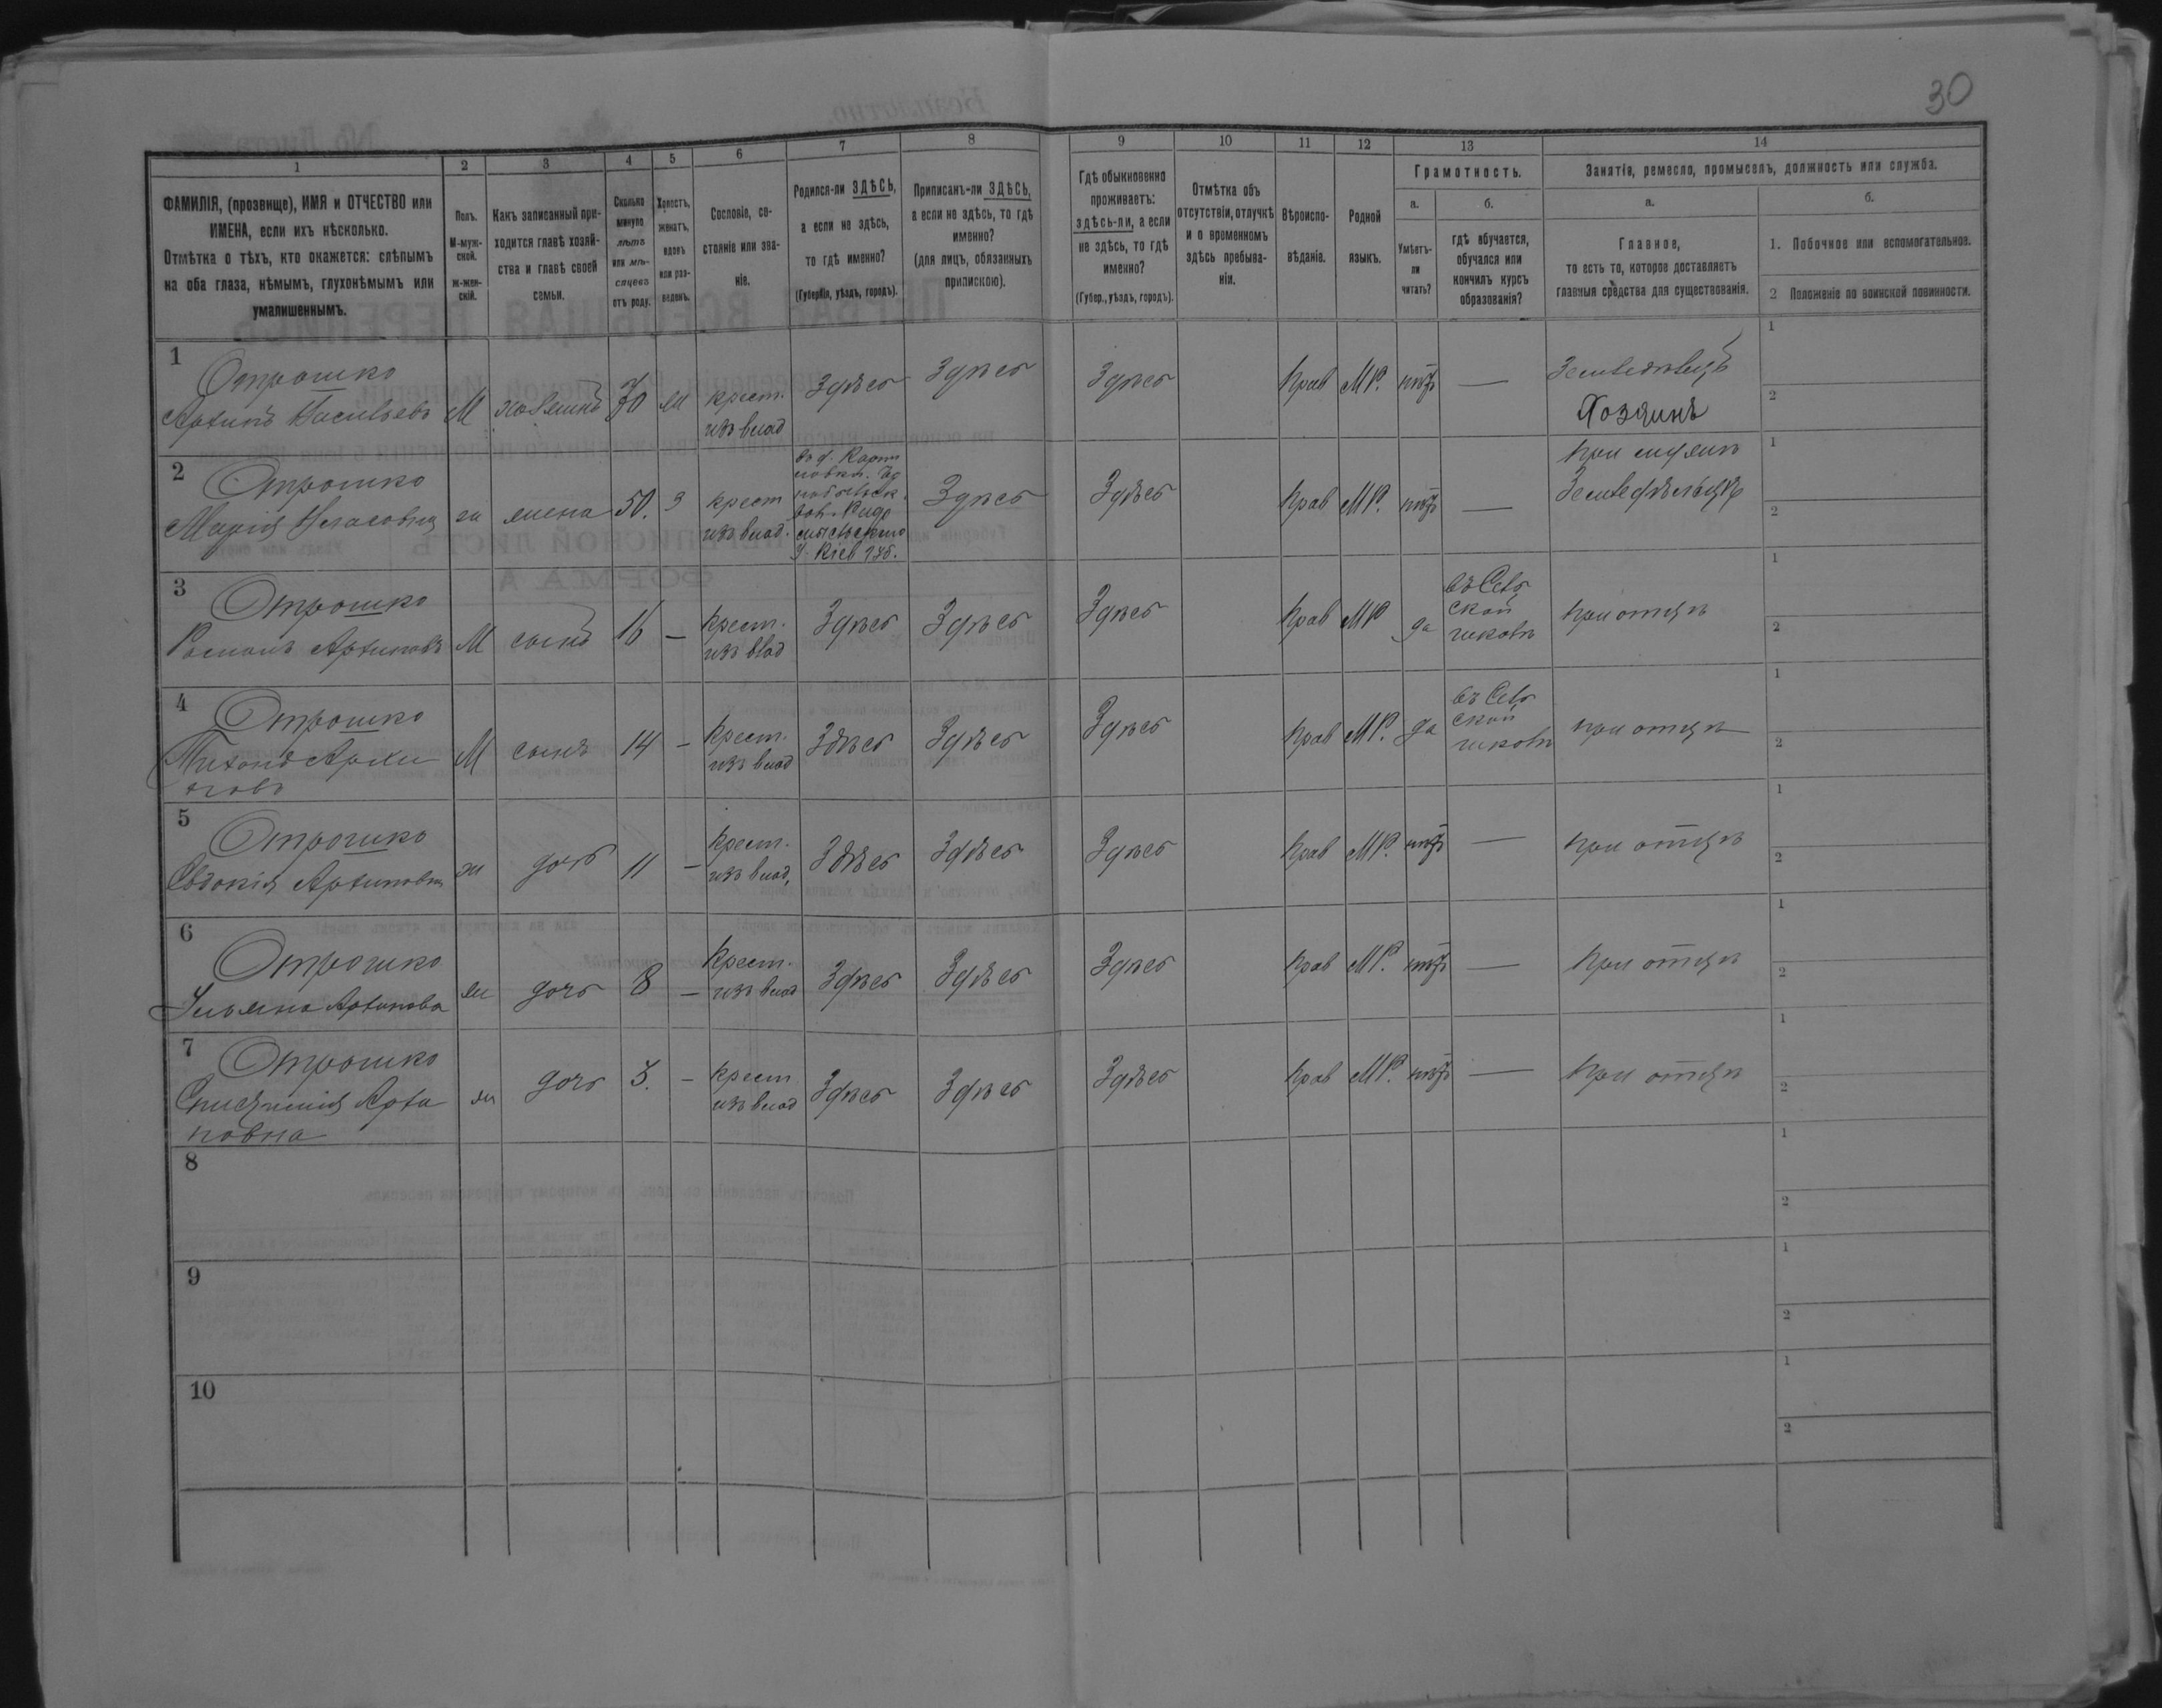 30
1 2 3 4 5 6 7 8 9 10 11 12 13 14
ФАМИЛІЯ, (прозвище), ИМЯ и ОТЧЕСТВО или
ИМЕНА, если ихъ нѣсколько.
Отмѣтка о тѣхъ, кто окажется: слѣпымъ
на оба глаза, нѣмымъ, глухонѣмымъ или
умалишеннымъ.
Полъ.
М-муж-
ской.
Ж-жен-
скій.
Какъ записанный при-
ходится главѣ хозяй-
ства и главѣ своей
семьи.
Сколько
минуло
лѣтъ
или мѣ-
сяцевъ
отъ роду.
Холостъ,
женатъ,
вдовъ
или раз-
веденъ.
Сословіе, со-
стояніе или зва-
ніе.
Родился-ли ЗДѢСЬ,
а если не здѣсь,
то гдѣ именно?
(Губернія, уѣздъ, городъ).
Приписанъ-ли ЗДѢСЬ,
а если не здѣсь, то гдѣ
именно?
(для лицъ, обязанныхъ
припискою).
Гдѣ обыкновенно
проживаетъ:
здѣсь-ли, а если
не здѣсь, то гдѣ
именно?
(Губер., уѣздъ, городъ).
Отмѣтка объ
отсутствіи, отлучкѣ
и о временномъ
здѣсь пребыва-
ніи.
Вѣроиспо-
вѣданіе.
Родной
языкъ.
Грамотность.
а.
Умѣетъ-
ли
читать?
б.
гдѣ обучается,
обучался или
кончилъ курсъ
образованія?
Занятіе, ремесло, промыселъ, должность или служба.
а.
Главное,
то есть то, которое доставляетъ
главныя средства для существованія.
б.
1. Побочное или вспомогательное.
2 Положеніе по воинской повинности.
1
Отрошко
Архипъ Васильевъ
М
хозяинъ
70
ж
крест.
изъ влад
Здѣсь
Здѣсь
Здѣсь
Прав
МР.
нѣтъ
—
Земледѣлецъ
Хозяинъ
1
2
2
Отрошко
Марія
ж
жена
50.
З
крест
изъ влад.
Кіев губ.
Здѣсь
Здѣсь
Прав
МР.
нѣтъ
—
при мужѣ
1
2
3
Отрошко
Романъ Архиповъ
М
сынъ
16
—
крест.
изъ влад
Здѣсь
Здѣсь
Здѣсь
Прав
МР
да
въ Сель
ской
школѣ
при отцѣ
1
2
4
Отрошко
Тихонъ Архи
повъ
М
сынъ
14
—
Крест.
изъ влад
Здѣсь
Здѣсь
Здѣсь
Прав
МР.
да
въ Сель
ской
школѣ
при отцѣ
1
2
5
Отрошко
Евдокія Архиповна
ж
дочь
11
—
Крест.
изъ влад.
Здѣсь
Здѣсь
Здѣсь
Прав
МР.
нѣтъ
—
при отцѣ
1
2
6
Отрошко
Ульяна Архипова
ж
дочь
8
—
Крест.
изъ влад
Здѣсь
Здѣсь
Здѣсь
Прав
МР.
нѣтъ
—
при отцѣ
1
2
7
Отрошко
Архи
повна
ж
дочь
5.
—
крест
изъ влад
Здѣсь
Здѣсь
Здѣсь
Прав
МР.
нѣтъ
—
при отцѣ
1
2
8
1
2
9
1
2
10
1
2